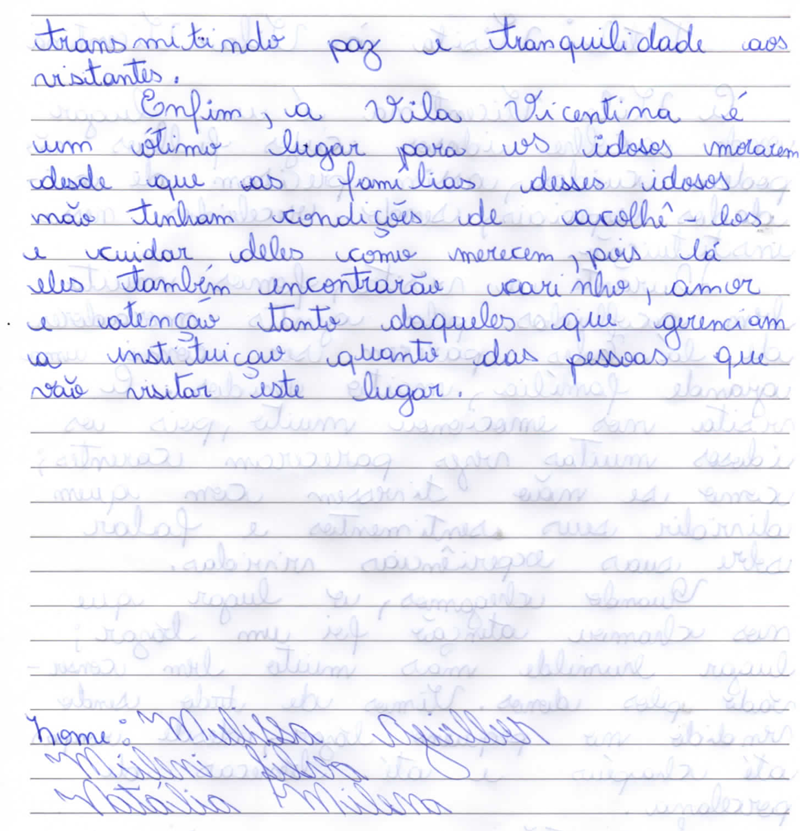 transmitindo paz e tranquilidade aos
visitantes.
Enfim, a Vila Vicentina é
um ótimo lugar para os idosos morarem
desde que as famílias desses idosos
não tenham condições de acolhê-los
e cuidar deles como merecem, pois lá
eles também encontrarão carinho, amor
e atenção tanto daqueles que gerenciam
a instituiçao quanto das pessoas que
vão visitar este lugar.
nome: Melissa
Mileni Silva
Natália Milena